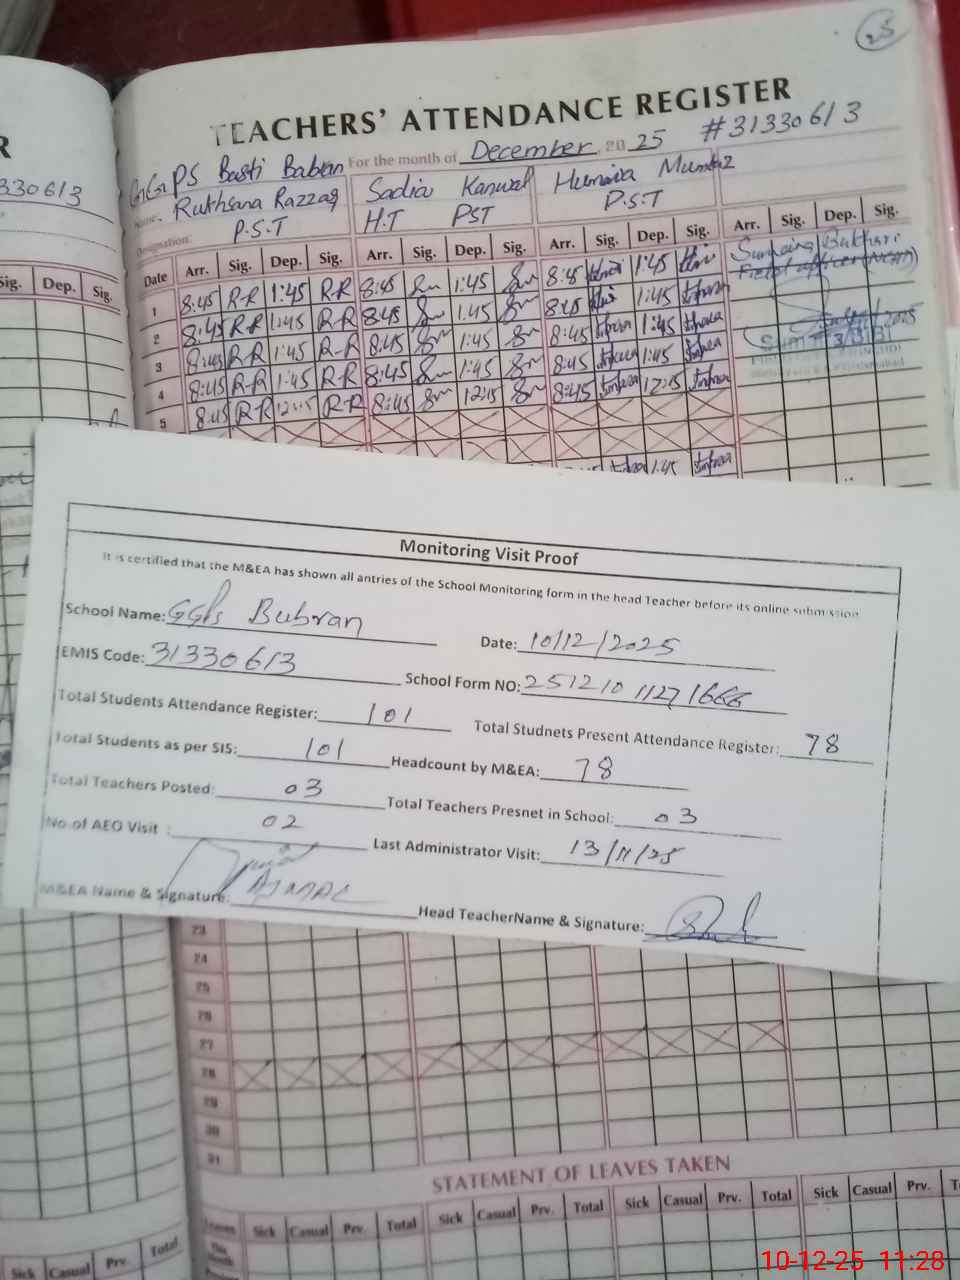 25
TEACHERS' ATTENDANCE REGISTER
GGPS Basti Babran For the month of December 2025 #31330613
R
330613
Name. Rukhsana Razzaq Sadia Kanwal Humaira Mumtaz
Designation: P.S.T H.T PST P.S.T
Date Arr. Sig. Dep. Sig. Arr. Sig. Dep. Sig. Arr. Sig. Dep. Sig. Arr. Sig. Dep. Sig.
Sig. Dep. Sig.
Sumaira Bukhari
1 8:45 R-R 1:45 R-R 8:45 1:45 8:45 1:45
2 8:45 R-R 1:45 R-R 8:45 1:45 8:45 1:45
3 8:45 R-R 1:45 R-R 8:45 1:45 8:45 1:45
4 8:45 R-R 1:45 R-R 8:45 1:45 8:45 1:45
5 8:45 R-R 12:15 R-R 8:45 12:15 8:45 12:15
1:45
Monitoring Visit Proof
It is certified that the M&EA has shown all antries of the School Monitoring form in the head Teacher before its online submission
School Name: GGPS Bubran Date: 10/12/2025
EMIS Code: 31330613 School Form NO: 251210 1127 1666
Total Students Attendance Register: 101 Total Studnets Present Attendance Register: 78
Total Students as per SIS: 101 Headcount by M&EA: 78
Total Teachers Posted: 03 Total Teachers Presnet in School: 03
No of AEO Visit : 02 Last Administrator Visit: 13/11/25
M&EA Name & Signature: AJMAL Head TeacherName & Signature:
23
24
25
26
27
28
29
30
31
STATEMENT OF LEAVES TAKEN
Leaves Sick Casual Prv. Total Sick Casual Prv. Total Sick Casual Prv. Total Sick Casual Prv.
This Month
Sick Casual Prv. Total
10-12-25 11:28